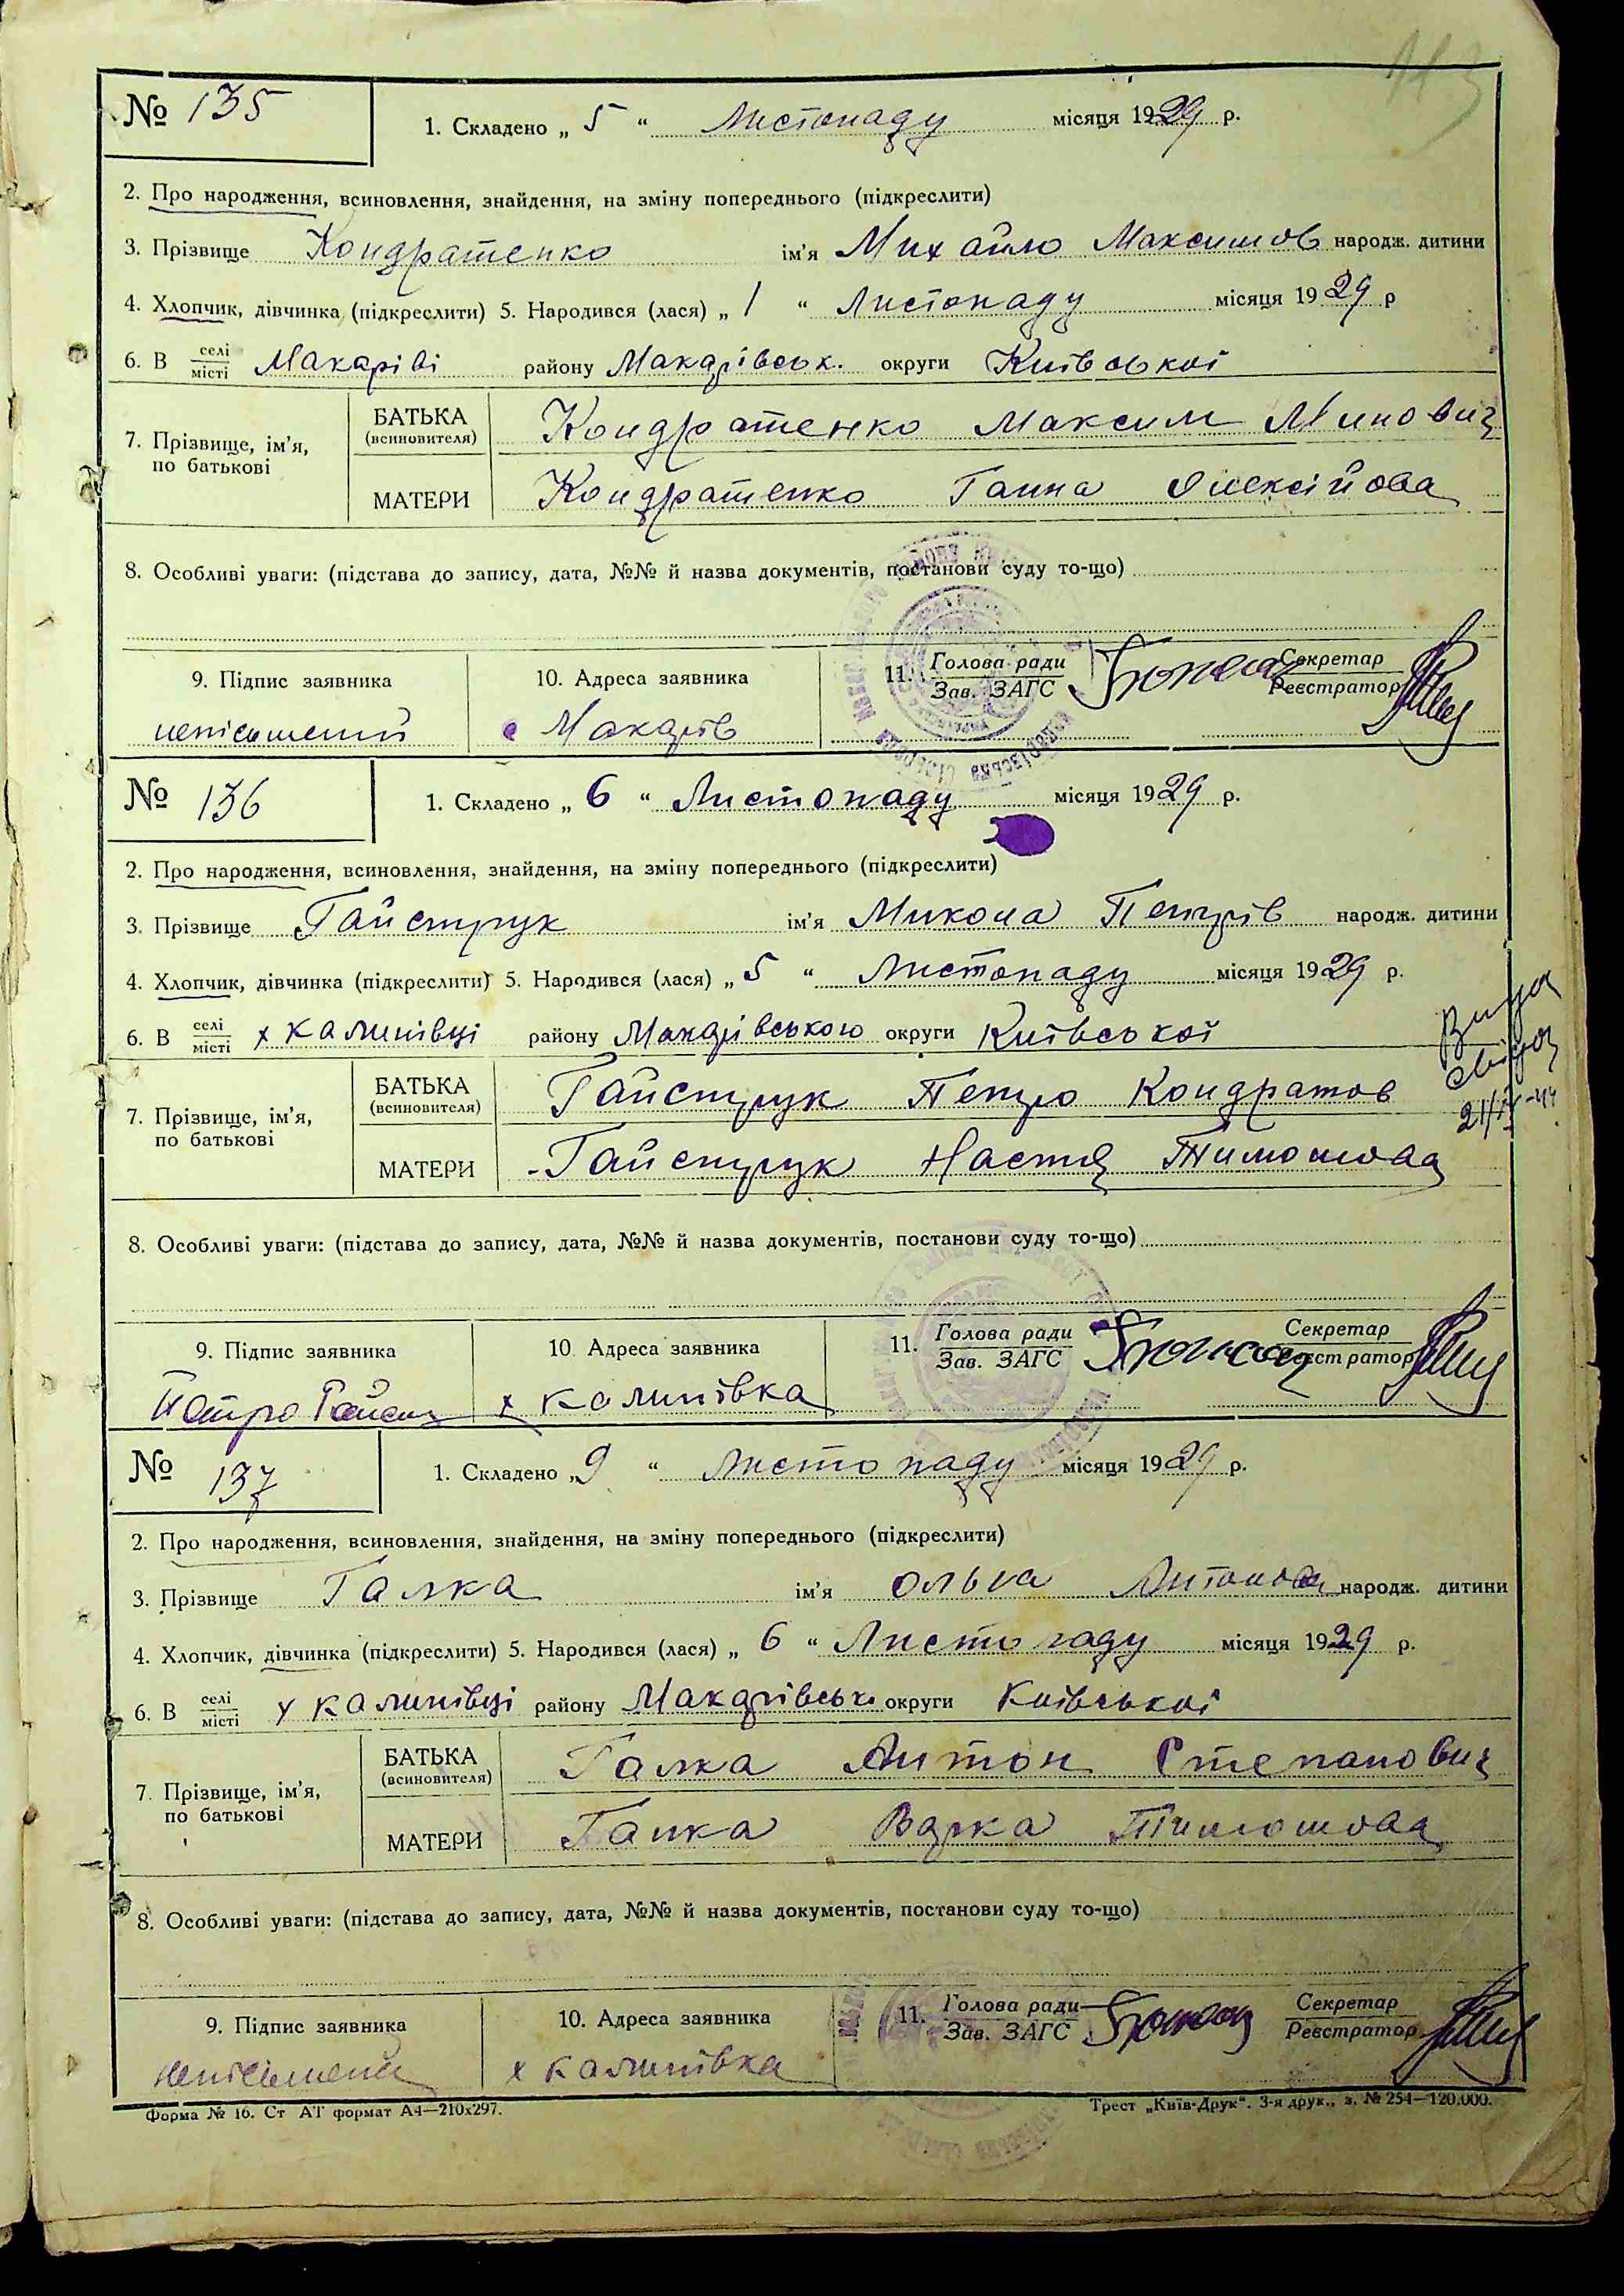 113
№ 135
1. Складено „ 5 “ Листопаду місяця 1929 р.
2. Про народження, всиновлення, знайдення, на зміну попереднього (підкреслити)
3. Прізвище Кондратенко ім’я Михайло Максимов народж. дитини
4. Хлопчик, дівчинка (підкреслити) 5. Народився (лася) „ 1 “ Листопаду місяця 1929 р
6. В селі місті Макаріві району Макарівськ. округи Київської
7. Прізвище, ім’я, по батькові
БАТЬКА (всиновителя) Кондратенко Максим Минович
МАТЕРИ Кондратенко Ганна Олексійова
8. Особливі уваги: (підстава до запису, дата, №№ й назва документів, постанови суду то-що)
9. Підпис заявника 10. Адреса заявника 11. Голова ради Зав. ЗАГС Секретар Реєстратор
неписьмений с Макарів
№ 136
1. Складено „ 6 “ Листопаду місяця 1929 р.
2. Про народження, всиновлення, знайдення, на зміну попереднього (підкреслити)
3. Прізвище Гайструк ім’я Микола Петрів народж. дитини
4. Хлопчик, дівчинка (підкреслити) 5. Народився (лася) „ 5 “ Листопаду місяця 1929 р.
6. В селі місті х Калинівці району Макарівською округи Київської
7. Прізвище, ім’я, по батькові
БАТЬКА (всиновителя) Гайструк Петро Кондратов
МАТЕРИ Гайструк Настя Тимошова
21/IV-44
8. Особливі уваги: (підстава до запису, дата, №№ й назва документів, постанови суду то-що)
9. Підпис заявника 10. Адреса заявника 11. Голова ради Зав. ЗАГС Секретар Реєстратор
Петро х Калинівка
№ 137
1. Складено „ 9 “ Листопаду місяця 1929 р.
2. Про народження, всиновлення, знайдення, на зміну попереднього (підкреслити)
3. Прізвище Галка ім’я Олька Антонова народж. дитини
4. Хлопчик, дівчинка (підкреслити) 5. Народився (лася) „ 6 “ Листопаду місяця 1929 р.
6. В селі місті у Калинівці району Макарівськ. округи Київської
7. Прізвище, ім’я, по батькові
БАТЬКА (всиновителя) Галка Антон Степанович
МАТЕРИ Галка Варка Тимошова
8. Особливі уваги: (підстава до запису, дата, №№ й назва документів, постанови суду то-що)
9. Підпис заявника 10. Адреса заявника 11. Голова ради Зав. ЗАГС Секретар Реєстратор
неписьмений х Калинівка
Форма № 16. Ст АТ формат А4—210х297. Трест „Київ-Друк“. 3-я друк., з. № 254—120.000.